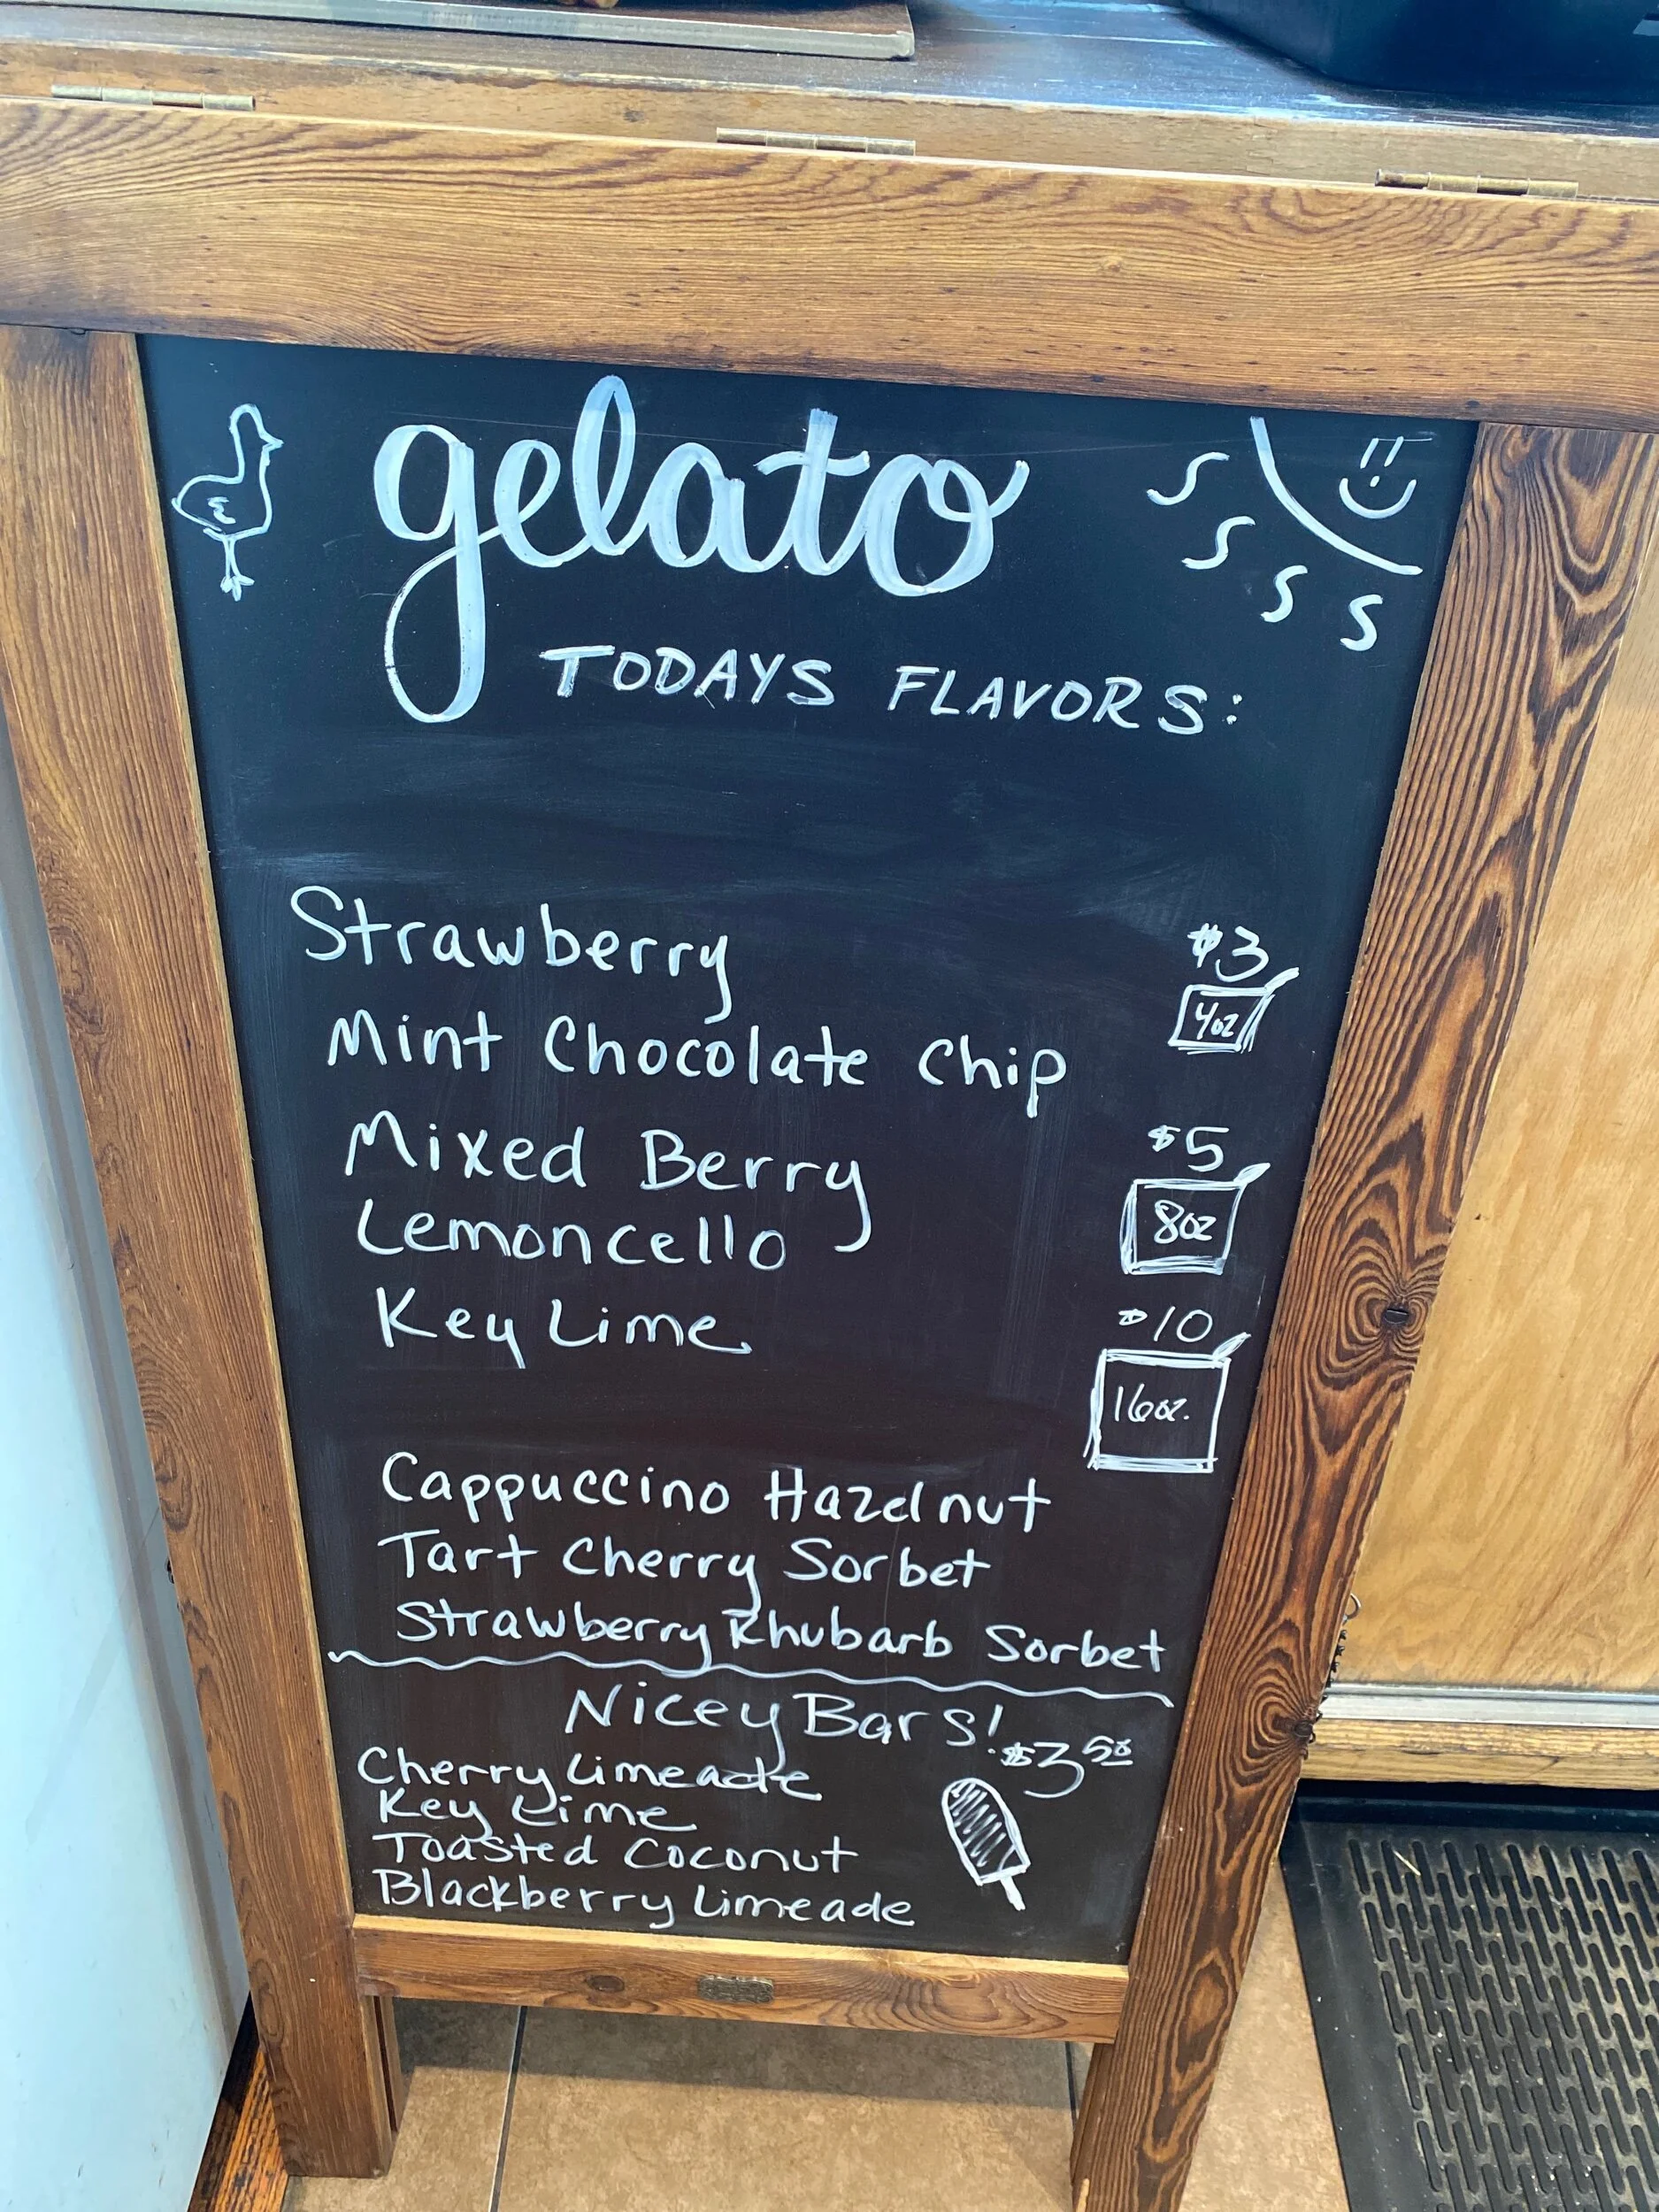 gelato
TODAYS FLAVORS:
Strawberry
$3
4oz
Mint Chocolate Chip
Mixed Berry
$5
8oz
Lemoncello
Key Lime
$10
16oz.
Cappuccino Hazelnut
Tart Cherry Sorbet
Strawberry Rhubarb Sorbet
Nicey Bars!
$3.50
Cherry Limeade
Key Lime
Toasted Coconut
Blackberry Limeade